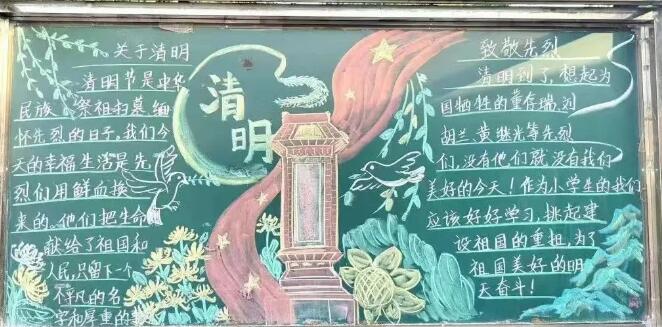 关于清明
清明节是中华
民族祭祖扫墓,缅
怀先烈的日子,我们今
天的幸福生活是先
烈们用鲜血换
来的。他们把生命
献给了祖国和
人民,只留下一个
不平凡的名
字和厚重的
清明
致敬先烈
清明到了,想起为
国牺牲的董存瑞,刘
胡兰,黄继光等先烈
们,没有他们就没有我们
美好的今天!作为小学生的我们
应该好好学习,挑起建
设祖国的重担,为了
祖国美好的明
天奋斗!